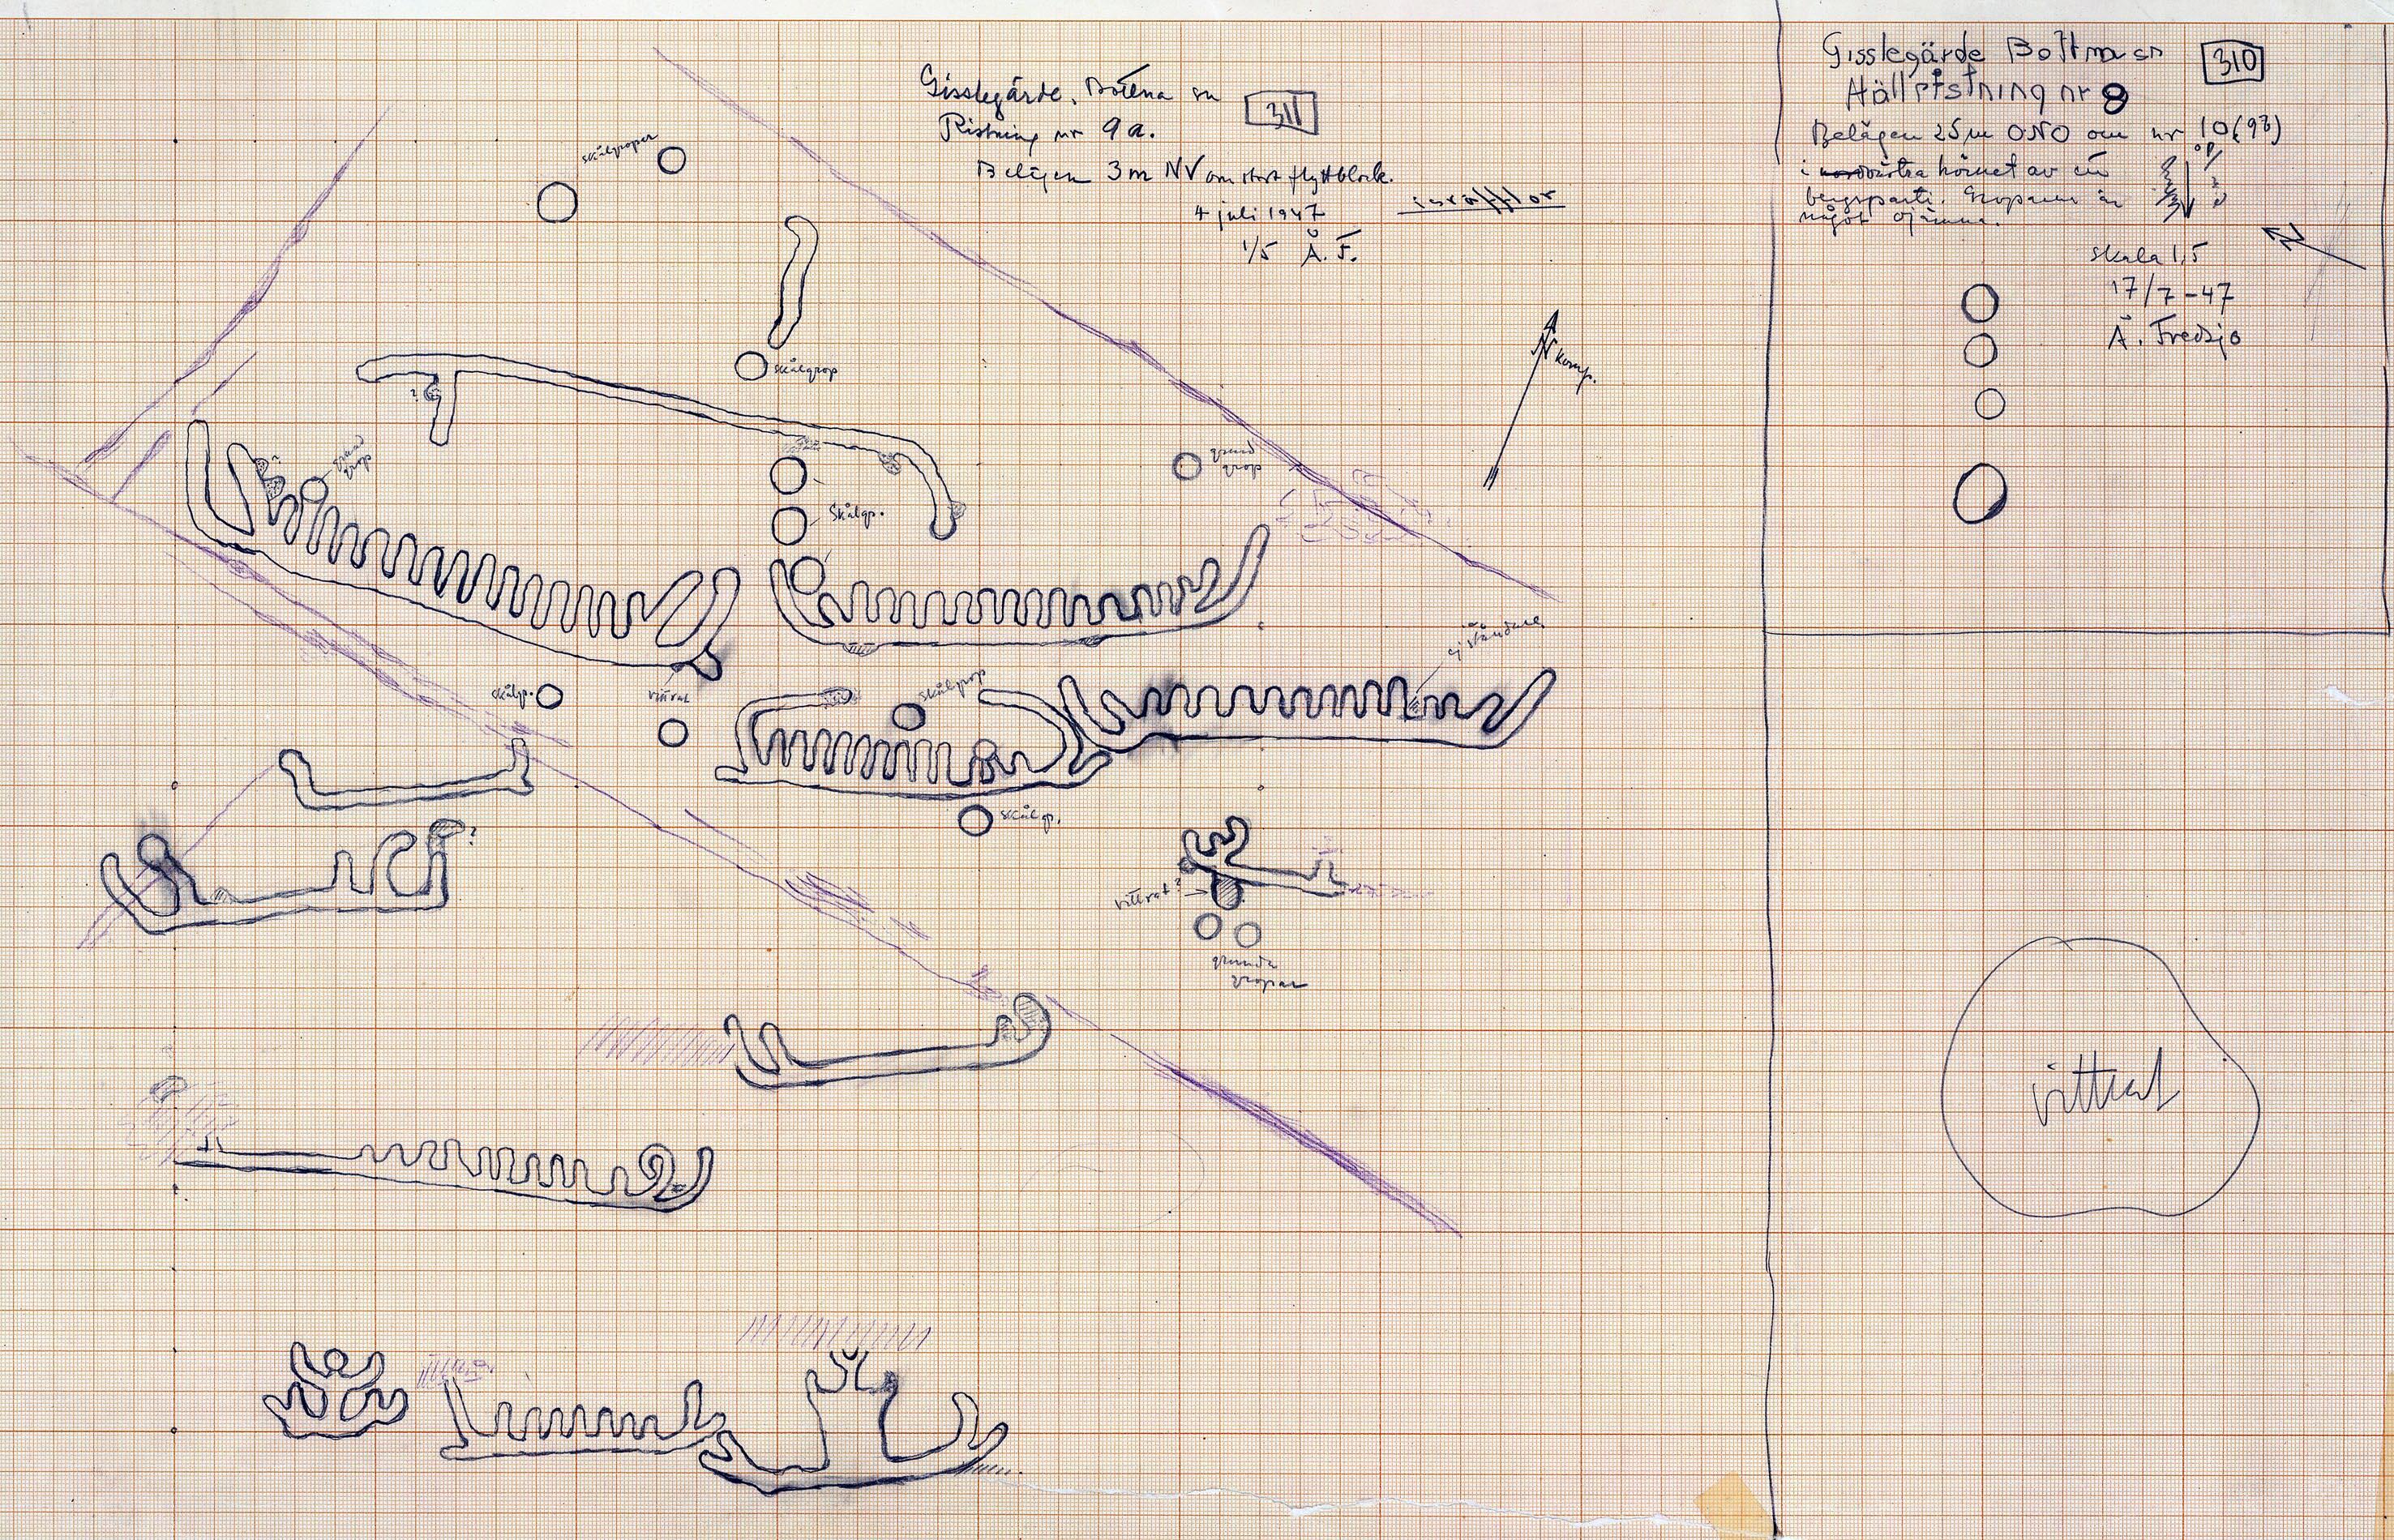 Gisslegärde. Bottna sn 311
Ristning nr 9 a.
Belägen 3 m NV om stort flyttblock.
4 juli 1947
1/5 Å. F.
Gisslegärde Bottna sn 310
Hällristning nr 8
Belägen 25 m ONO om nr 10 (9?)
i nordvästra hörnet av en
bergsparti. Groparna är
något ojämna.
skala 1,5
17/7-47
Å. Fredsjö
N
skålgropar
skålgrop
N komp.
?
grund
grop
grund
grop
Skålgp.
ej ständare
skålgp.
vittrat
skålgrop
skålgp.
?
vittrat?
grunda
gropar
vittrat